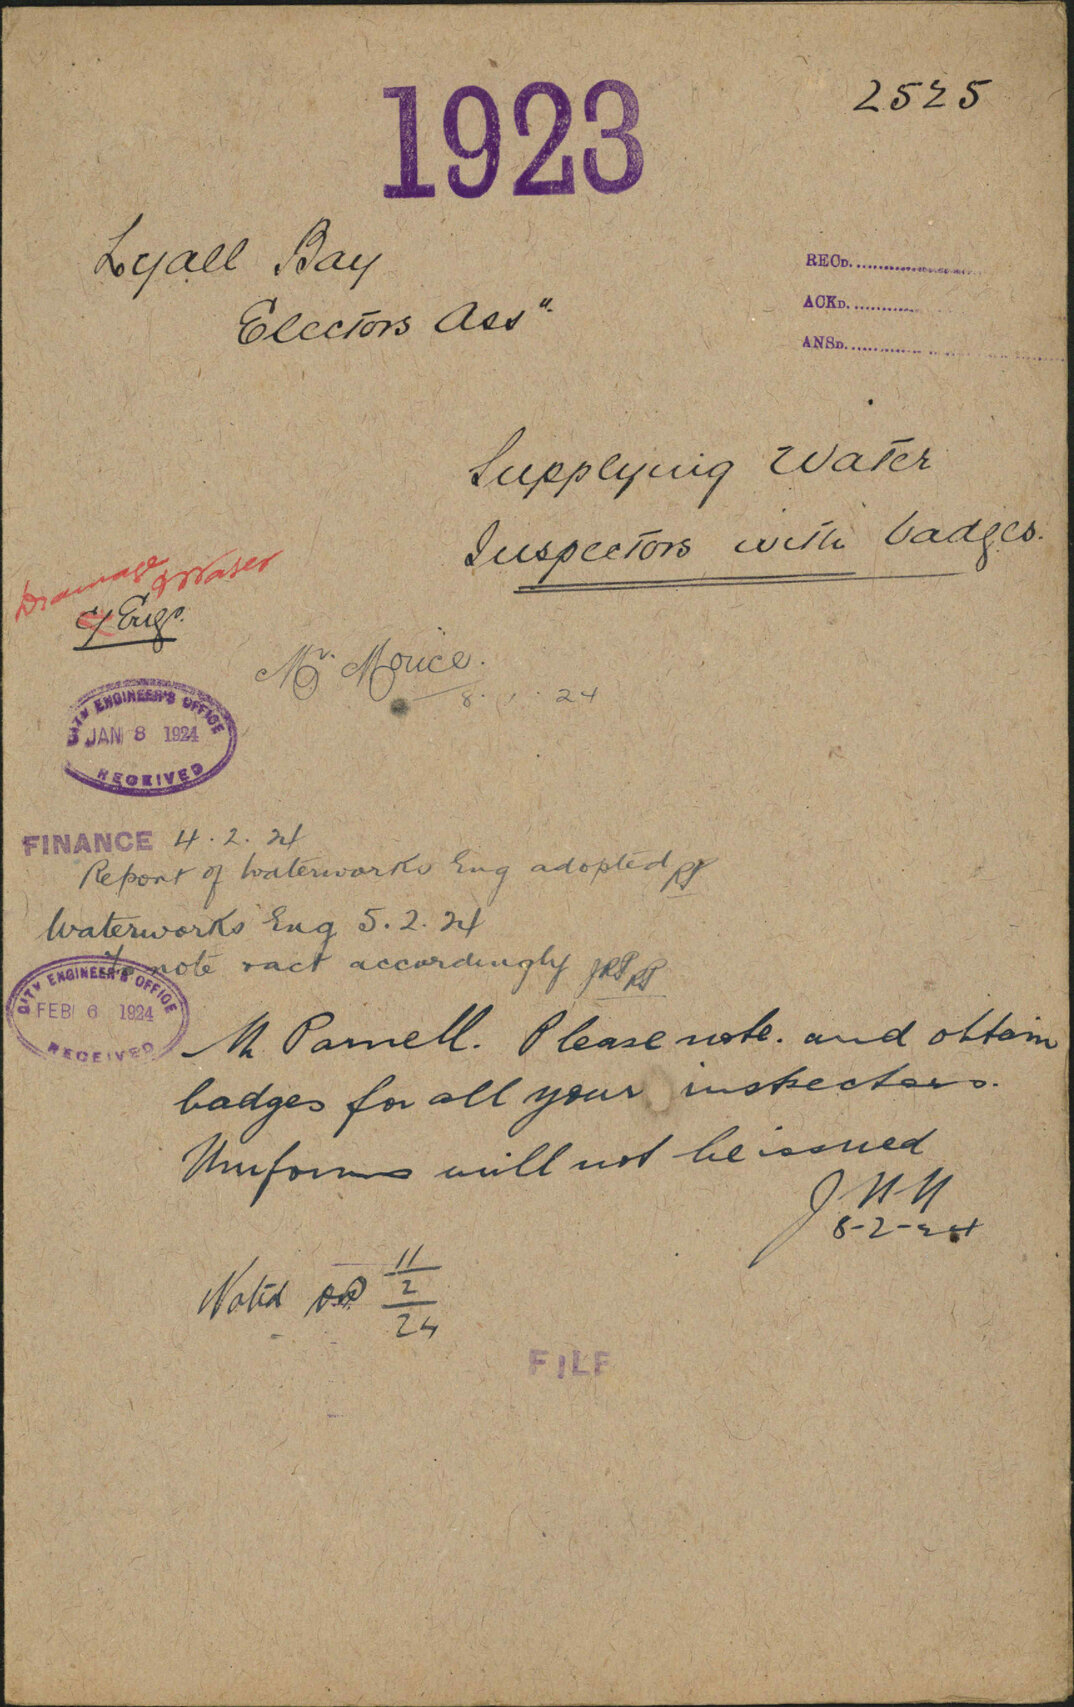 1923
2525
Lyall Bay
Electors Assn.
RECD.
ACKD.
ANSD.
Supplying Water
Inspectors with badges.
Drainage & Water
Cy Engr.
Mr. Morice.
8. 1. 24
CITY ENGINEER'S OFFICE
JAN 8 1924
RECEIVED
FINANCE 4.2.24
Report of Waterworks Eng adopted
Waterworks Eng 5.2.24
To note & act accordingly
CITY ENGINEER'S OFFICE
FEB 6 1924
RECEIVED
Mr Parnell. Please note. and obtain
badges for all your inspectors.
Uniforms will not be issued
8-2-24
Noted 11/2/24
FILE